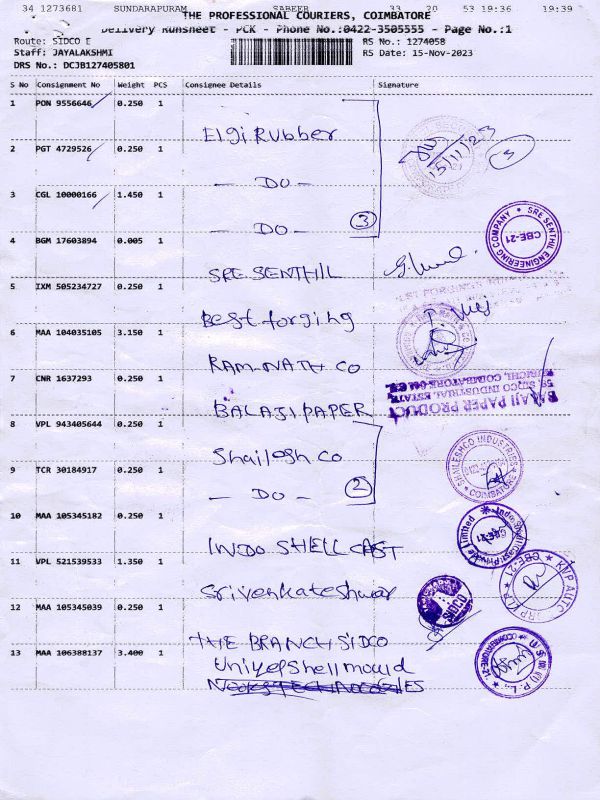 34 1273681 SUNDARAPURAM SABEER 33 20 53 19:36 19:39
THE PROFESSIONAL COURIERS, COIMBATORE
Delivery Runsheet - PCK - Phone No.:0422-3505555 - Page No.:1
Route: SIDCO E RS No.: 1274058
Staff: JAYALAKSHMI RS Date: 15-Nov-2023
DRS No.: DCJB127405801
S No Consignment No Weight PCS Consignee Details Signature
1 PON 9556646 0.250 1
Elgi Rubber
2 PGT 4729526 0.250 1
15/11/23 3
- DO -
3 CGL 10000166 1.450 1
- DO - 3
SRE SENTHIL ENGINEERING COMPANY CBE-21
4 BGM 17603894 0.005 1
SRE SENTHIL
5 IXM 505234727 0.250 1
Best forging
6 MAA 104035105 3.150 1
RAM-NATH CO
7 CNR 1637293 0.250 1
BALAJI PAPER
BALAJI PAPER PRODUCT
SIDCO INDUSTRIAL ESTATE,
KURICHI, COIMBATORE
8 VPL 943405644 0.250 1
Shailesh co
SHAILESHCO INDUSTRIES COIMBATORE
9 TCR 30184917 0.250 1
- DO - 2
10 MAA 105345182 0.250 1
INDO SHELL CAST
Indo Shell Cast Private Limited CBE-21
11 VPL 521539533 1.350 1
Srivenkateshwar
CBE-21
12 MAA 105345039 0.250 1
SIDCO
THE BRANCH SIDCO
13 MAA 106388137 3.400 1
Univel Shell mould